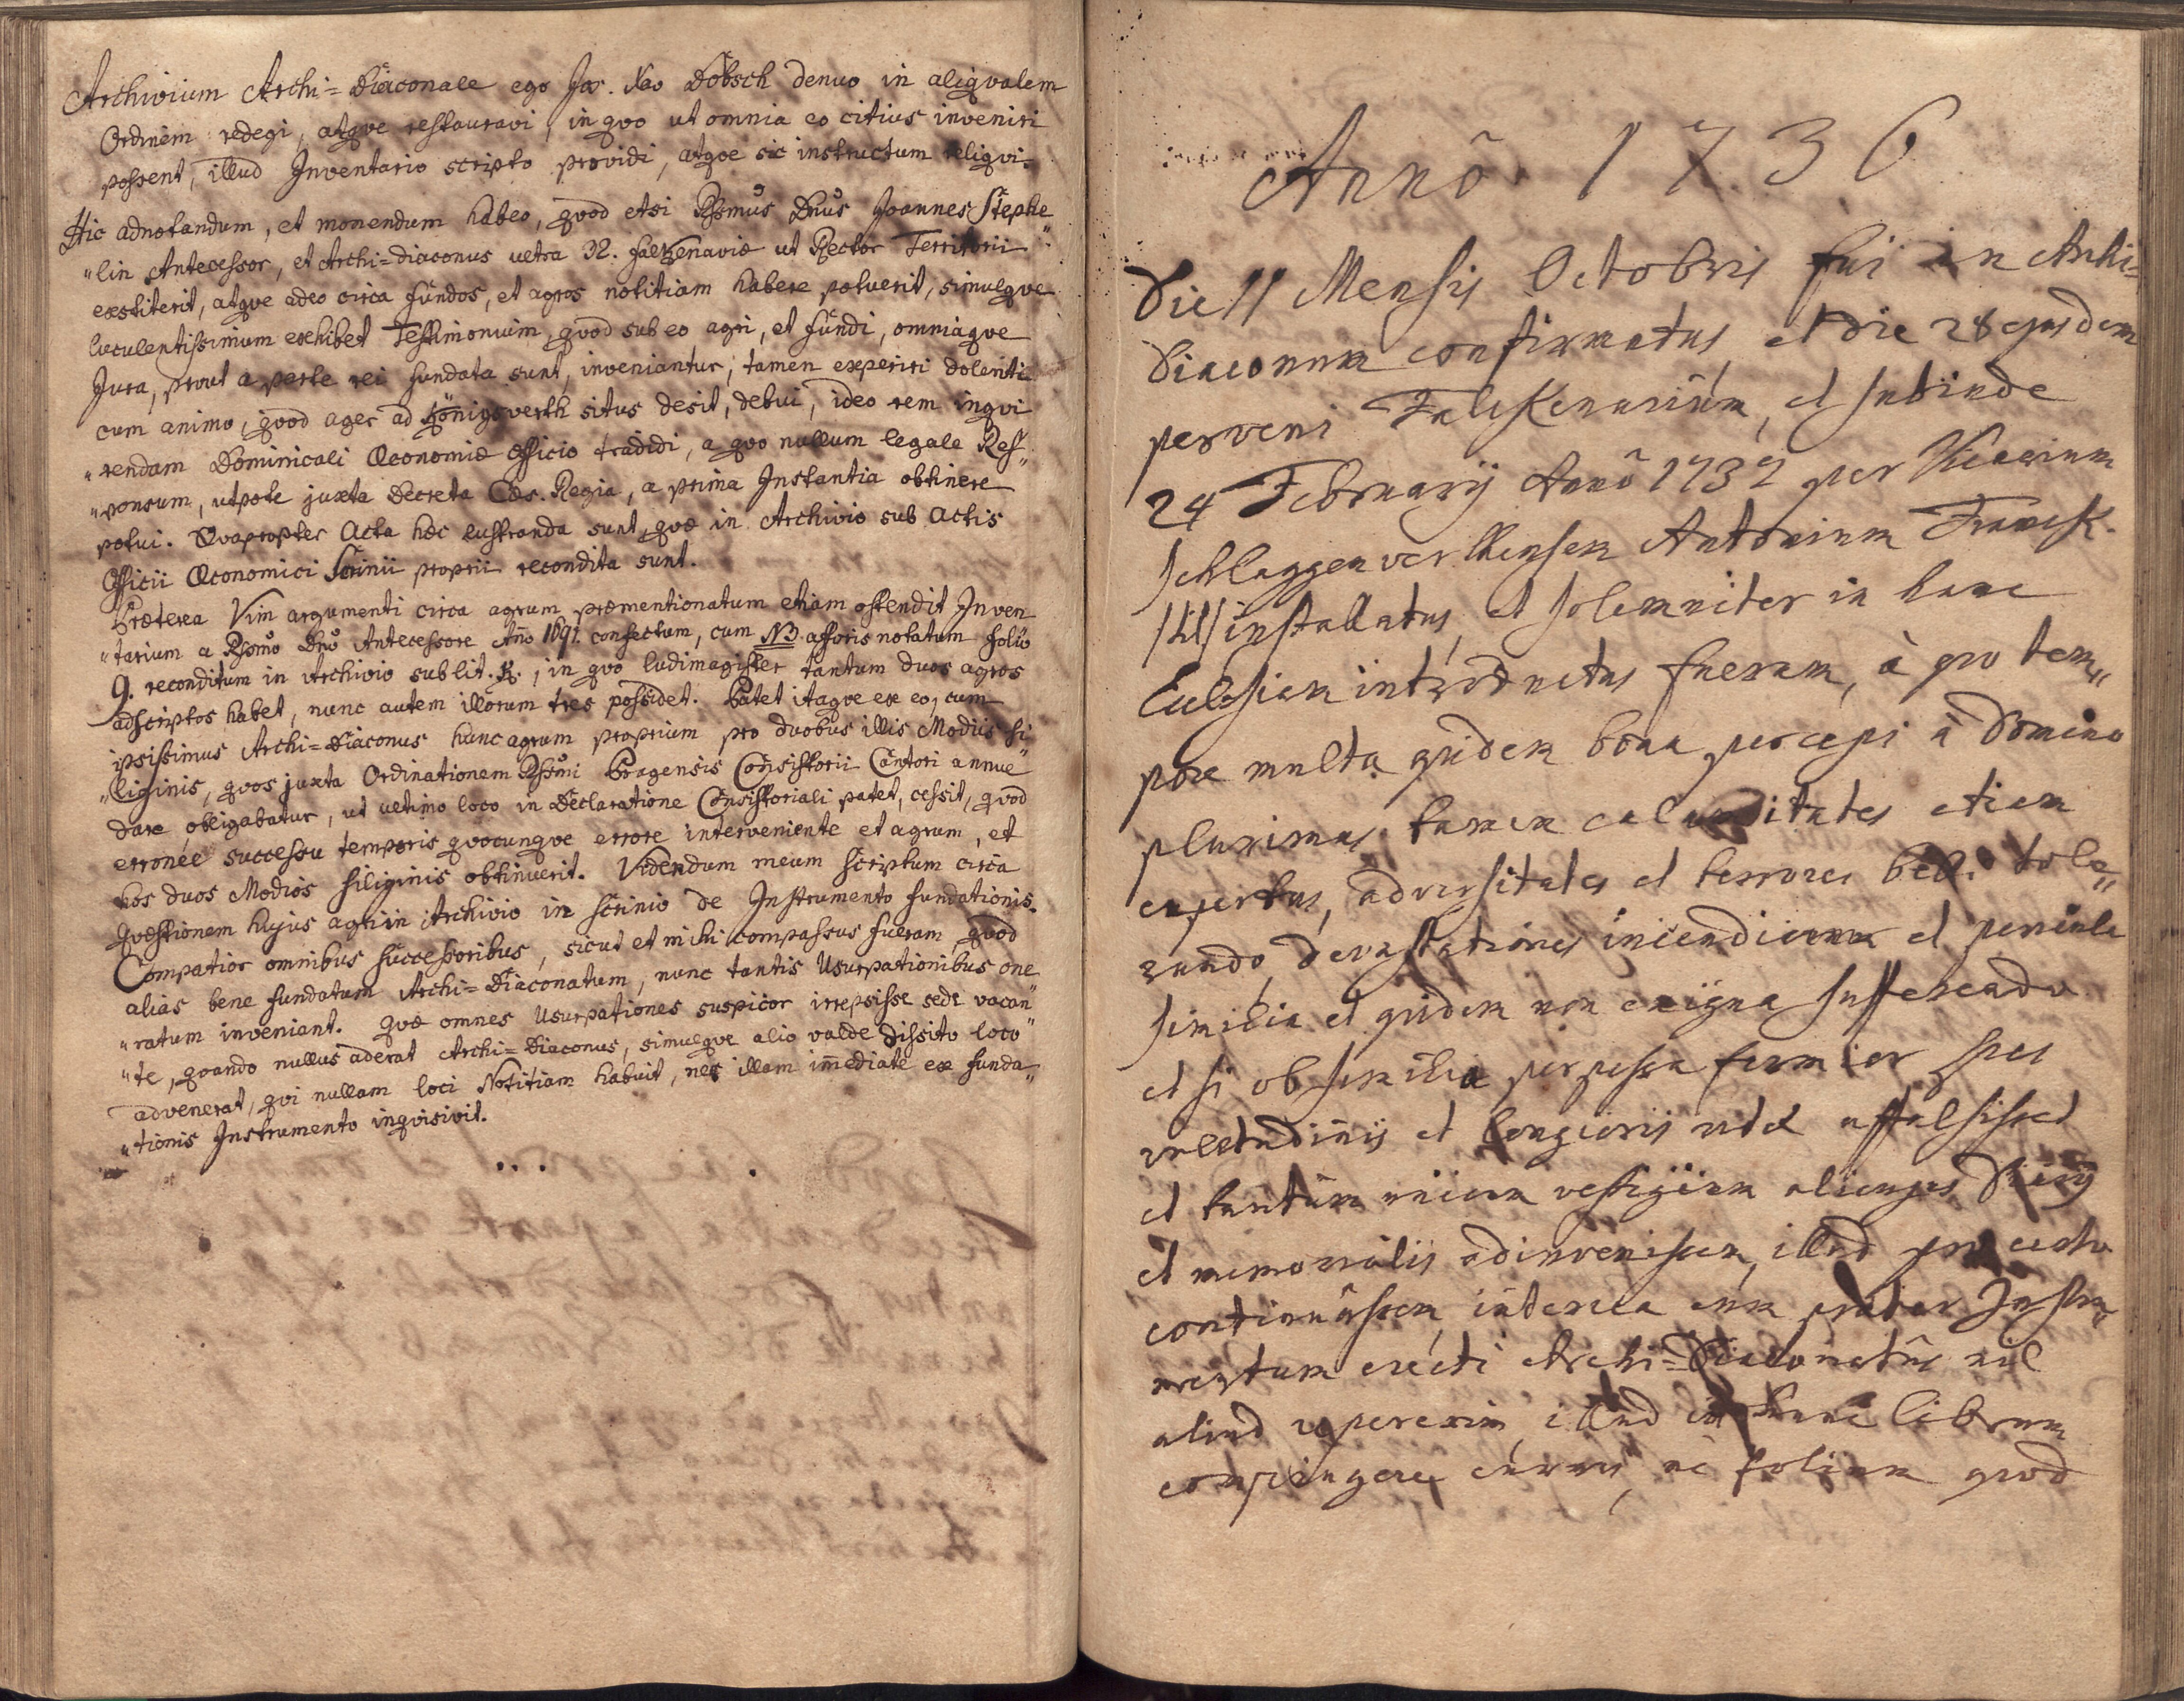 Archivium Archi=Diaconale ego Jos. Xav Döbsch denuo in aliqvalem
Ordinem redegi, atqve restauravi, in qvo ut omnia eo citius inveniri
possent, illud Inventario scripto providi, atqve sic instructum reliqvi.
Hic adnotandum, et monendum habeo, qvod etsi Rssmus Dnus Joannes Stephe
"lin Antecessor, et Archi=diaconus ultra 32. Falkenaviæ ut Rector Territorii
exstiterit, atqve adeo circa fundos, et agros notitiam habere potuerit, simulqve
luculentissimum exhibet Testimonium, qvod sub eo agri, et fundi, omniaqve
Jura, prout a parte rei fundata sunt, inveniantur; tamen experiri dolenti
cum animo, qvod ager ad Königsverth situs desit, debui, ideo rem inqvi
"rendam Dominicali Œconomiæ Officio tradidi, a qvo nullum legale Res"
"ponsum, utpote juxta Decreta Cæs. Regia, a prima Instantia obtinere
potui. Qvapropter Acta hæc lustranda sunt, qvæ in Archivio sub Actis
Officii Œconomici Scrinii proprii recondita sunt.
Præterea Vim argumenti circa agrum præmentionatum etiam ostendit Inven
"tarium a Rssmo Dno Antecessore Ano 1691. confectum, cum NB. afforis notatum folio
9. reconditum in Archivio sub lit. K., in qvo ludimagister tantum duos agros
adscriptos habet, nunc autem illorum tres possidet. Patet itaqve ex eo, cum
ipsissimus Archi=Diaconus hunc agrum proprium pro duobus illis Modiis si
"liginis, qvos juxta Ordinationem Rssmi Pragensis Consistorii Cantori annue"
dare obligabatur, ut ultimo loco in Declaratione Consistoriali patet, cessit, qvod
erronee successu temporis qvocunqve errore interveniente et agrum, et
hos duos Modios siliginis obtinuerit. Videndum meum scriptum circa
qvæstionem hujus agri in Archivio in scrinio de Instrumento fundationis.
Compatior omnibus successoribus, sicut et mihi compassus fueram qvod
alias bene fundatum Archi=Diaconatum, nunc tantis Usurpationibus one
"ratum inveniant. Qvæ omnes Usurpationes suspicor irrepsisse sede vacan"
"te, qvando nullus aderat Archi=Diaconus, simulqve alio valde dissito loco"
advenerat, qvi nullam loci Notitiam habuit, nec illam immediate ex funda"
"tionis Instrumento inqvisivit.
Annô 1736
Die 11 Mensis Octobris fui in Archi=
Diaconum confirmatus, et die 28 ejusdem
perveni Falckenavium, et subinde
24 Februarij Annô 1737 per Vicarium
Schlaggenverthensem Antonium Franck.
installatus, et solemniter in hanc
Ecclesiam introductus fueram, à quo tem"
pore multa quidem bona percepi à Domino
plurimas tamen calamitates etiam
expertus, adversitates et terrores belli tole"
rando, devastationes incendiorum et pericula
similia et quidem non exigua sufferendo
et si ob similia perpessa firmior spes
valetudinis et longioris vitæ affulsisset
et tantùm unicum vestigium alicujus Diarij
et memorialis adinvenissem, illud pro certo
continuâssem, interea cum præter Instru"
mentum erecti Archi=Diaconatûs nil
aliud repererim, illud in hunc librum
compingere curavi, ac folium quod